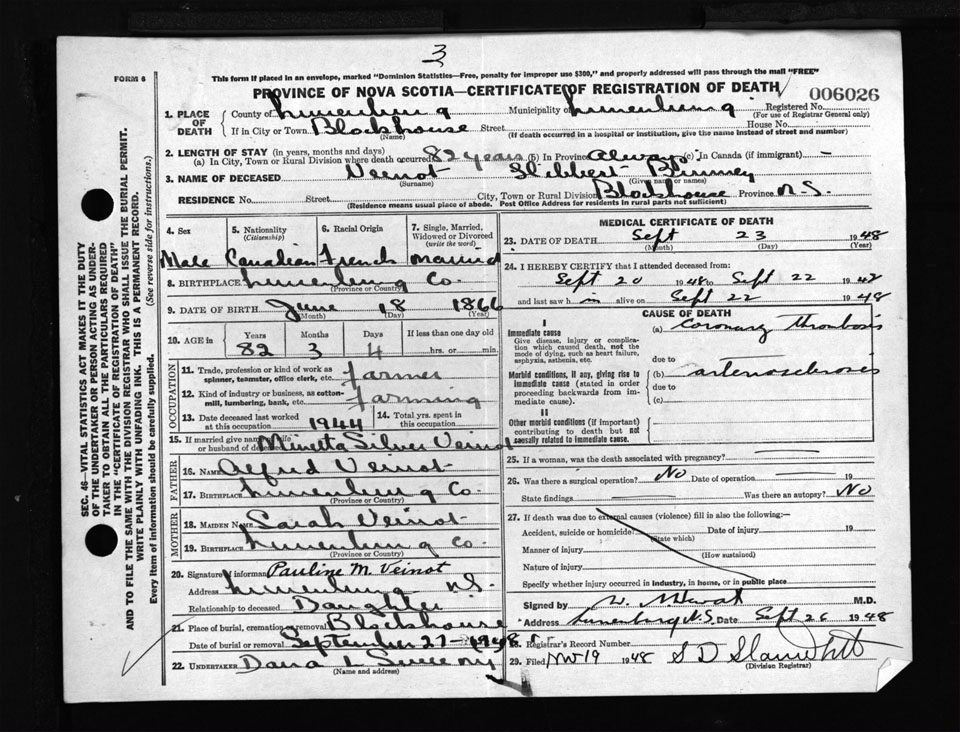 3
FORM 6
This form if placed in an envelope, marked "Dominion Statistics—Free, penalty for improper use $300," and properly addressed will pass through the mail "FREE"
PROVINCE OF NOVA SCOTIA—CERTIFICATE OF REGISTRATION OF DEATH
006026
1. PLACE OF DEATH
County of Lunenburg Municipality of Lunenburg Registered No.
(For use of Registrar General only)
If in City or Town Blockhouse Street House No.
(Name) (If death occurred in a hospital or institution, give the name instead of street and number)
2. LENGTH OF STAY (in years, months and days)
(a) In City, Town or Rural Division where death occurred 82 years (b) In Province Always (c) In Canada (if immigrant) —
3. NAME OF DECEASED Veinot Hibbert Binney
(Surname) (Given name or names)
RESIDENCE No. Street City, Town or Rural Division Blockhouse Province N.S.
(Residence means usual place of abode. Post Office Address for residents in rural parts not sufficient)
4. Sex
5. Nationality (Citizenship)
6. Racial Origin
7. Single, Married, Widowed or Divorced (write the word)
Male Canadian French Married
8. BIRTHPLACE Lunenburg Co.
(Province or County)
9. DATE OF BIRTH June 18 1866
(Month) (Day) (Year)
10. AGE in
Years Months Days If less than one day old
82 3 4 hrs. or min.
OCCUPATION
11. Trade, profession or kind of work as spinner, teamster, office clerk, etc. Farmer
12. Kind of industry or business, as cotton-mill, lumbering, bank, etc. Farming
13. Date deceased last worked at this occupation 1944
14. Total yrs. spent in this occupation
15. If married give name of wife or husband of deceased Minetta Silver Veinot
FATHER
16. NAME Alfred Veinot
17. BIRTHPLACE Lunenburg Co.
(Province or Country)
MOTHER
18. MAIDEN NAME Sarah Veinot
19. BIRTHPLACE Lunenburg Co.
(Province or Country)
20. Signature of informant Pauline M. Veinot
Address Lunenburg N.S.
Relationship to deceased Daughter
21. Place of burial, cremation or removal Blockhouse
Date of burial or removal September 27 1948
22. UNDERTAKER Dana L Sweeny
(Name and address)
MEDICAL CERTIFICATE OF DEATH
23. DATE OF DEATH Sept 23 1948
(Month) (Day) (Year)
24. I HEREBY CERTIFY that I attended deceased from:
Sept 20 1948 to Sept 22 1948
and last saw him alive on Sept 22 1948
CAUSE OF DEATH
I
Immediate cause
Give disease, injury or complication which caused death, not the mode of dying, such as heart failure, asphyxia, asthenia, etc.
(a) Coronary Thrombosis
due to
Morbid conditions, if any, giving rise to immediate cause (stated in order proceeding backwards from immediate cause).
(b) arteriosclerosis
due to
(c)
II
Other morbid conditions (if important) contributing to death but not causally related to immediate cause.
25. If a woman, was the death associated with pregnancy?
26. Was there a surgical operation? No Date of operation 19
State findings Was there an autopsy? No
27. If death was due to external causes (violence) fill in also the following:—
Accident, suicide or homicide? Date of injury 19
(State which)
Manner of injury
(How sustained)
Nature of injury
Specify whether injury occurred in industry, in home, or in public place
Signed by M.D.
Address Lunenburg N.S. Date Sept 26 1948
28. Registrar's Record Number
29. Filed Nov 19 1948 S D
(Division Registrar)
SEC. 46—VITAL STATISTICS ACT MAKES IT THE DUTY
OF THE UNDERTAKER OR PERSON ACTING AS UNDER-
TAKER TO OBTAIN ALL THE PARTICULARS REQUIRED
IN THE "CERTIFICATE OF REGISTRATION OF DEATH"
AND TO FILE THE SAME WITH THE DIVISION REGISTRAR WHO SHALL ISSUE THE BURIAL PERMIT.
WRITE PLAINLY WITH UNFADING INK. THIS IS A PERMANENT RECORD.
Every item of information should be carefully supplied. (See reverse side for instructions.)